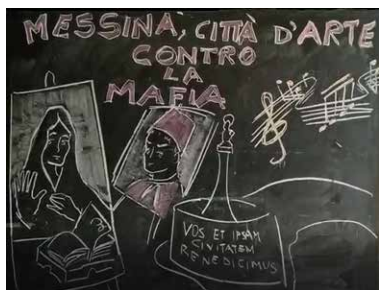 MESSINA, CITTÀ D'ARTE
CONTRO
LA
MAFIA
VOS ET IPSAM
CIVITATEM
BENEDICIMUS